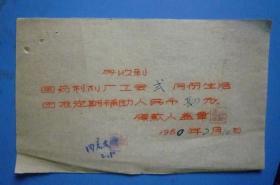 今收到
国药制剂厂工会 弍 月份生活
困难定期补助人民币 元
领款人盖章
1960年2月 日